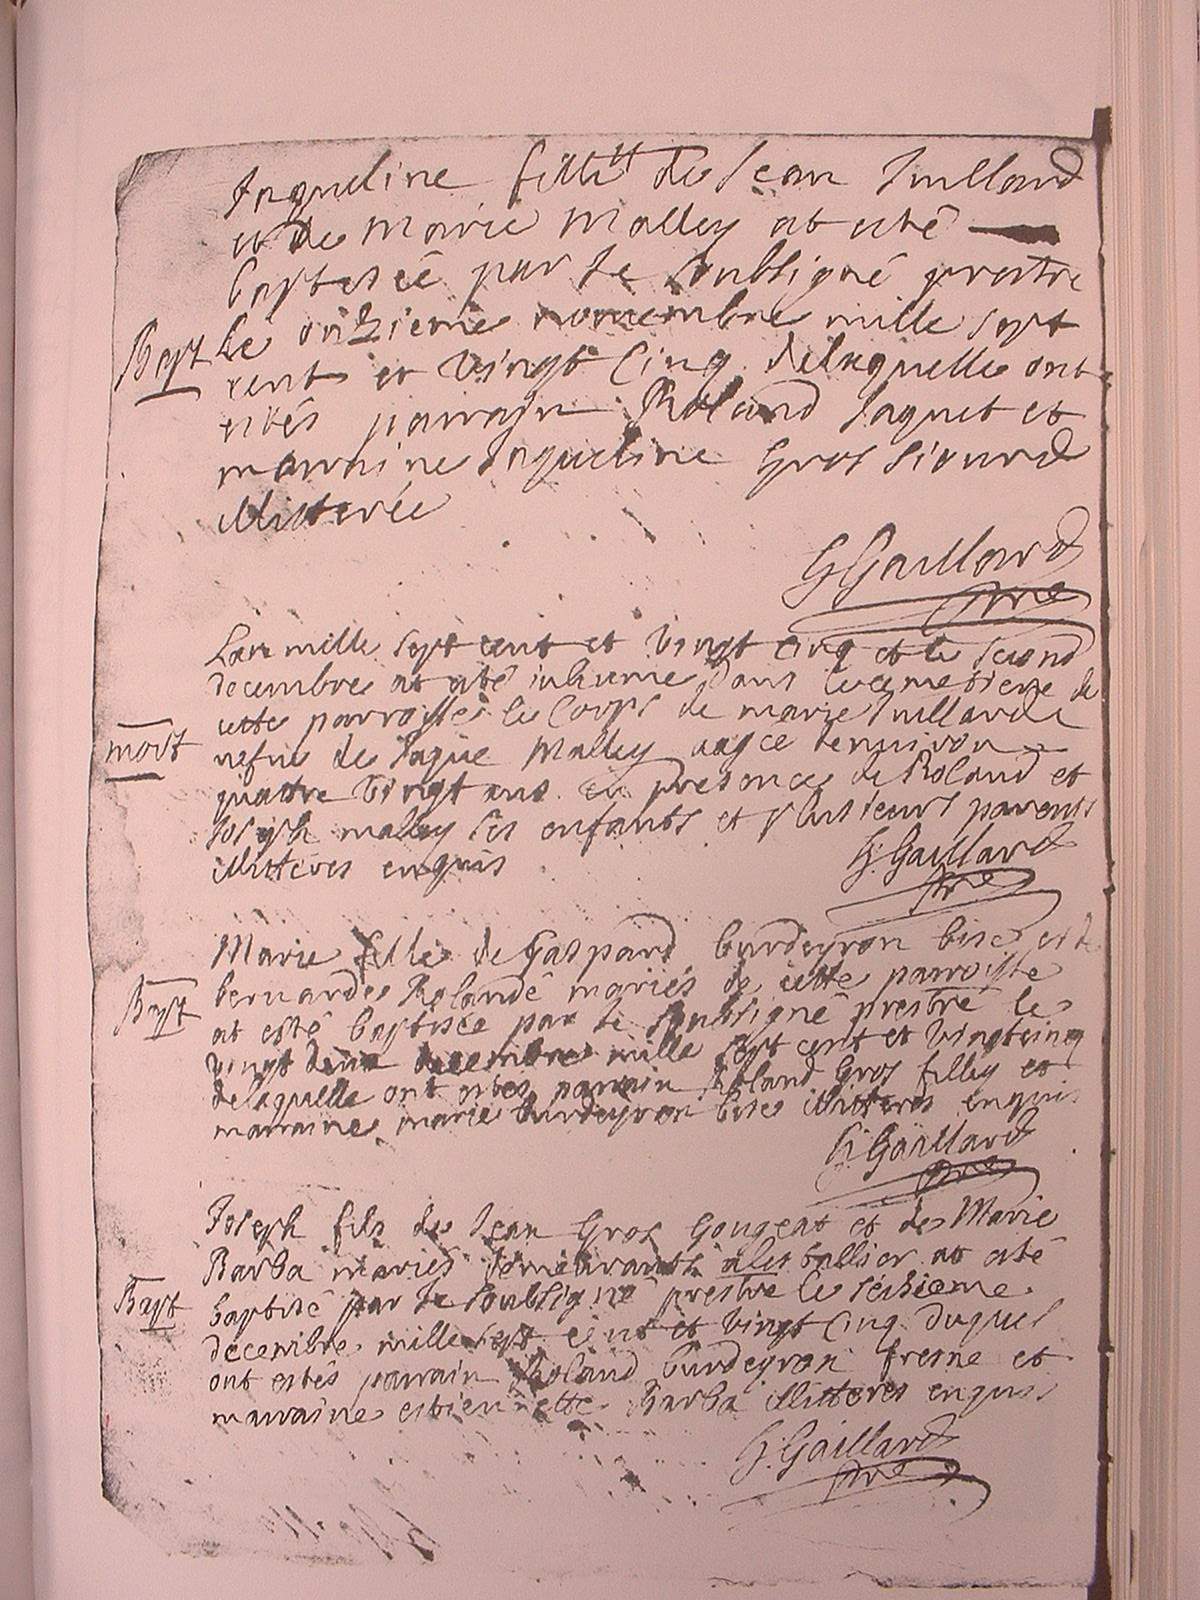 Jaqueline fille de Jean Juilland
et de Marie Malley at esté
baptesée par Je soubsigné prestre
Bapt Le onzieme novembre mille sept
cent et vingt cinq delaquelle ont
estés parrain Roland Jaquet et
marraine Jaqueline Gros
illitterée
G Gaillard
ptre
Lan mille sept cent et vingt cinq et le second
decembre at esté inhumé dans le cemetiere de
cette parroisse le Corps de marie Juillarde
mort
vefue de Jaque Malley aagée denuiron
quattre vingt ans en presence de Roland et
Joseph malley ses enfants et plusieurs parents
illitteres enquis
G. Gaillard
ptre
Marie fille de Gaspard burdeyron bise et de
bernarde Rolande mariés de cette parroisse
Bapt
at esté baptisée par Je soubsigné prestre le
vingt deux decembre mille sept cent et vingtcinq
delaquelle ont estés parrain Roland Gros filley et
marraine marie burdeyron bise illitteres enquis
G. Gaillard
ptre
Joseph fils de Jean Gros gougeat et de Marie
Barba mariés demeurants at esté
Bapt
baptisé par Je soubsigné prestre le seizieme
decembre mille sept cent et vingt cinq duquel
ont estés parrain Roland burdeyron fresne et
marraine estiennette Barba illitteres enquis
G. Gaillard
ptre